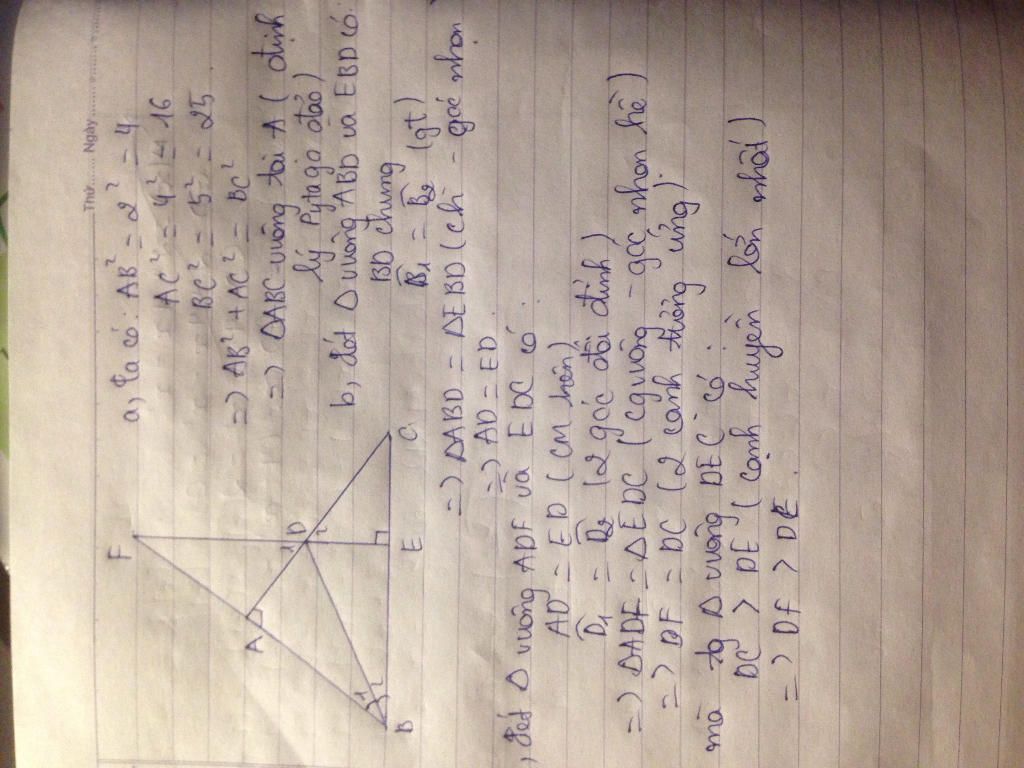 Thứ........ Ngày
a, Ta có : AB² = 2² = 4
AC² = 4² = 16
BC² = 5² = 25
=> AB² + AC² = BC²
=> ΔABC vuông tại A ( định
lý Pytago đảo)
b, Xét Δ vuông ABD và EBD có:
BD chung
B₁ = B₂ (gt)
=> ΔABD = ΔEBD (ch - góc nhọn
=> AD = ED
, Xét Δ vuông ADF và EDC có :
AD = ED (CM trên)
D₁ = D₂ (2 góc đối đỉnh)
=> ΔADF = ΔEDC (cgvuông - góc nhọn kề)
=> DF = DC (2 cạnh tương ứng)
mà tg Δ vuông DEC có :
DC > DE ( cạnh huyền lớn nhất)
=> DF > DE.
F
A
1 D
2
B
1
2
E
C